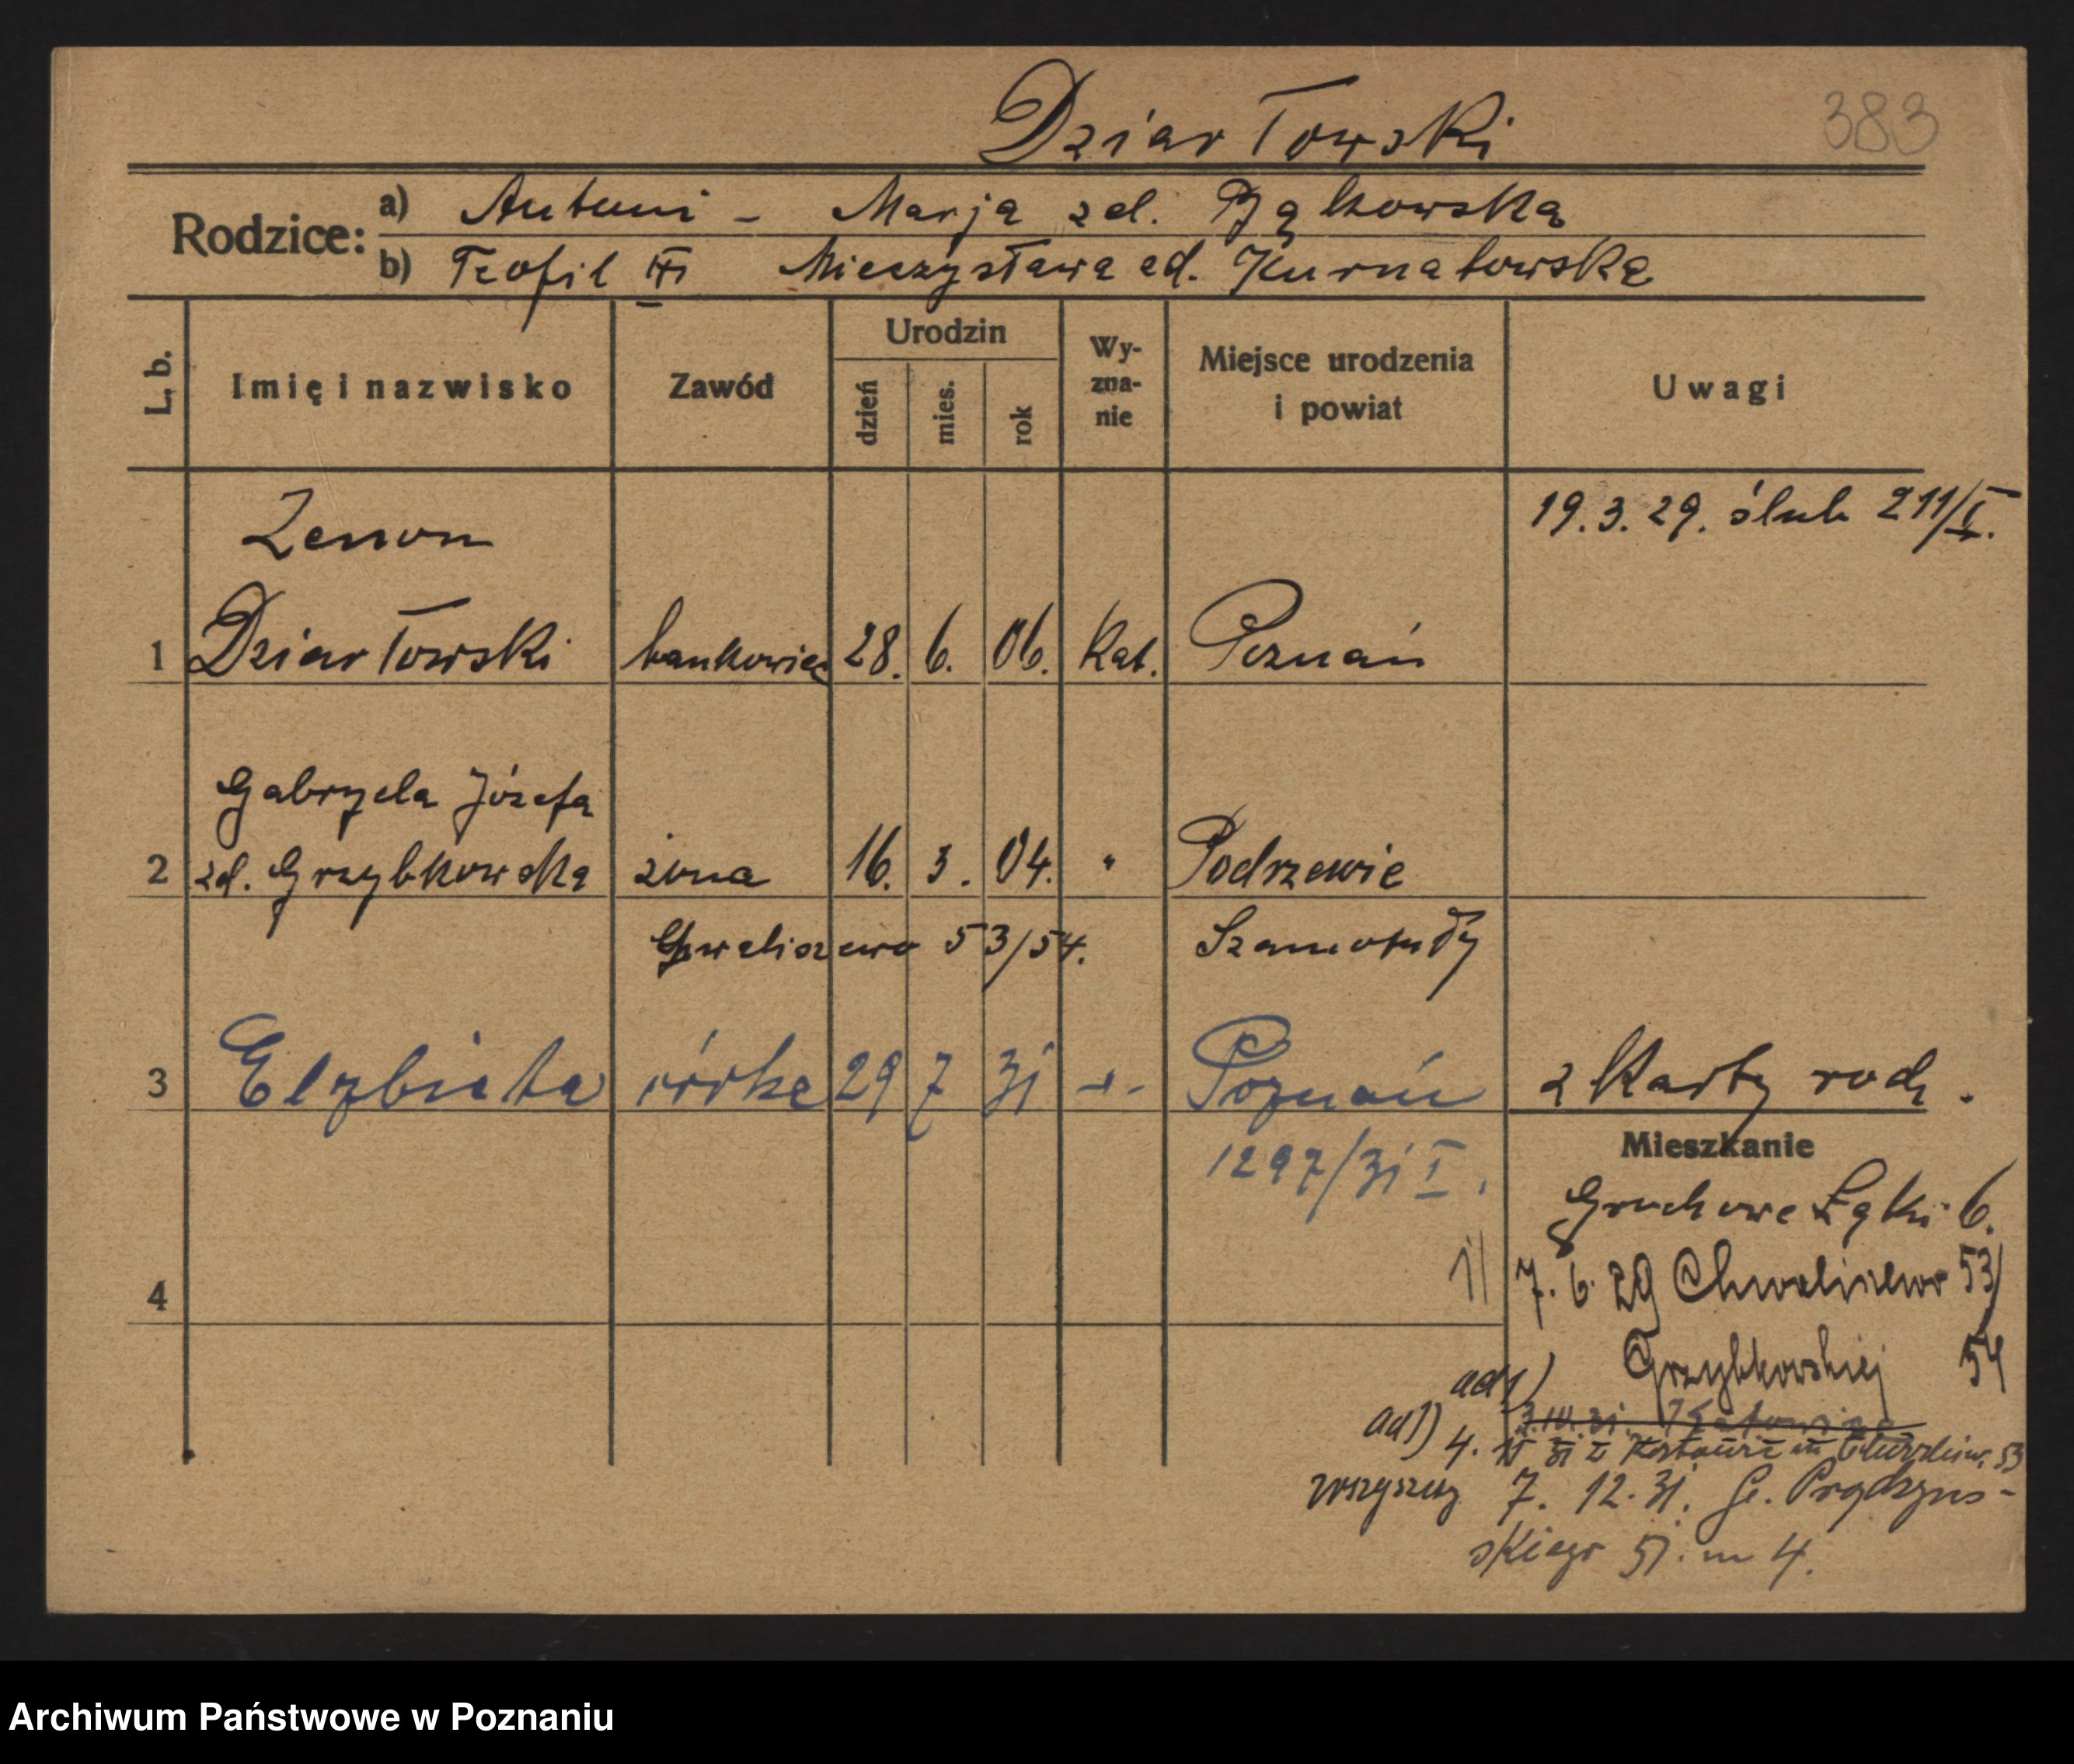 Dziarłowski
383
Rodzice:
a) Antoni - Marja zd. Bąkowska
b) Teofil Mieczysława zd. Kurnatowska
L. b.
Imię i nazwisko
Zawód
Urodzin
dzień
mies.
rok
Wy-
zna-
nie
Miejsce urodzenia
i powiat
Uwagi
19.3.29. ślub 211/I.
Zenon
1 Dziarłowski bankowiec 28. 6. 06. kat. Poznań
Gabryela Józefa
2 zd. Grzybkowska żona 16. 3. 04. " Podrzewie
Chwaliszewo 53/54. Szamotuły
3 Elzbieta córka 29 7 31 -"- Poznań z Karty rodz.
1297/31 I.
Mieszkanie
Grochowe Łąki 6.
1) 7. 6. 29 Chwaliszewo 53/
54
Grzybkowskiej
4
ad 1)
ad 1) 4. 31 z Katowic
wszyscy 7. 12. 31. Prądzyń-
skiego 51. m 4.
Archiwum Państwowe w Poznaniu